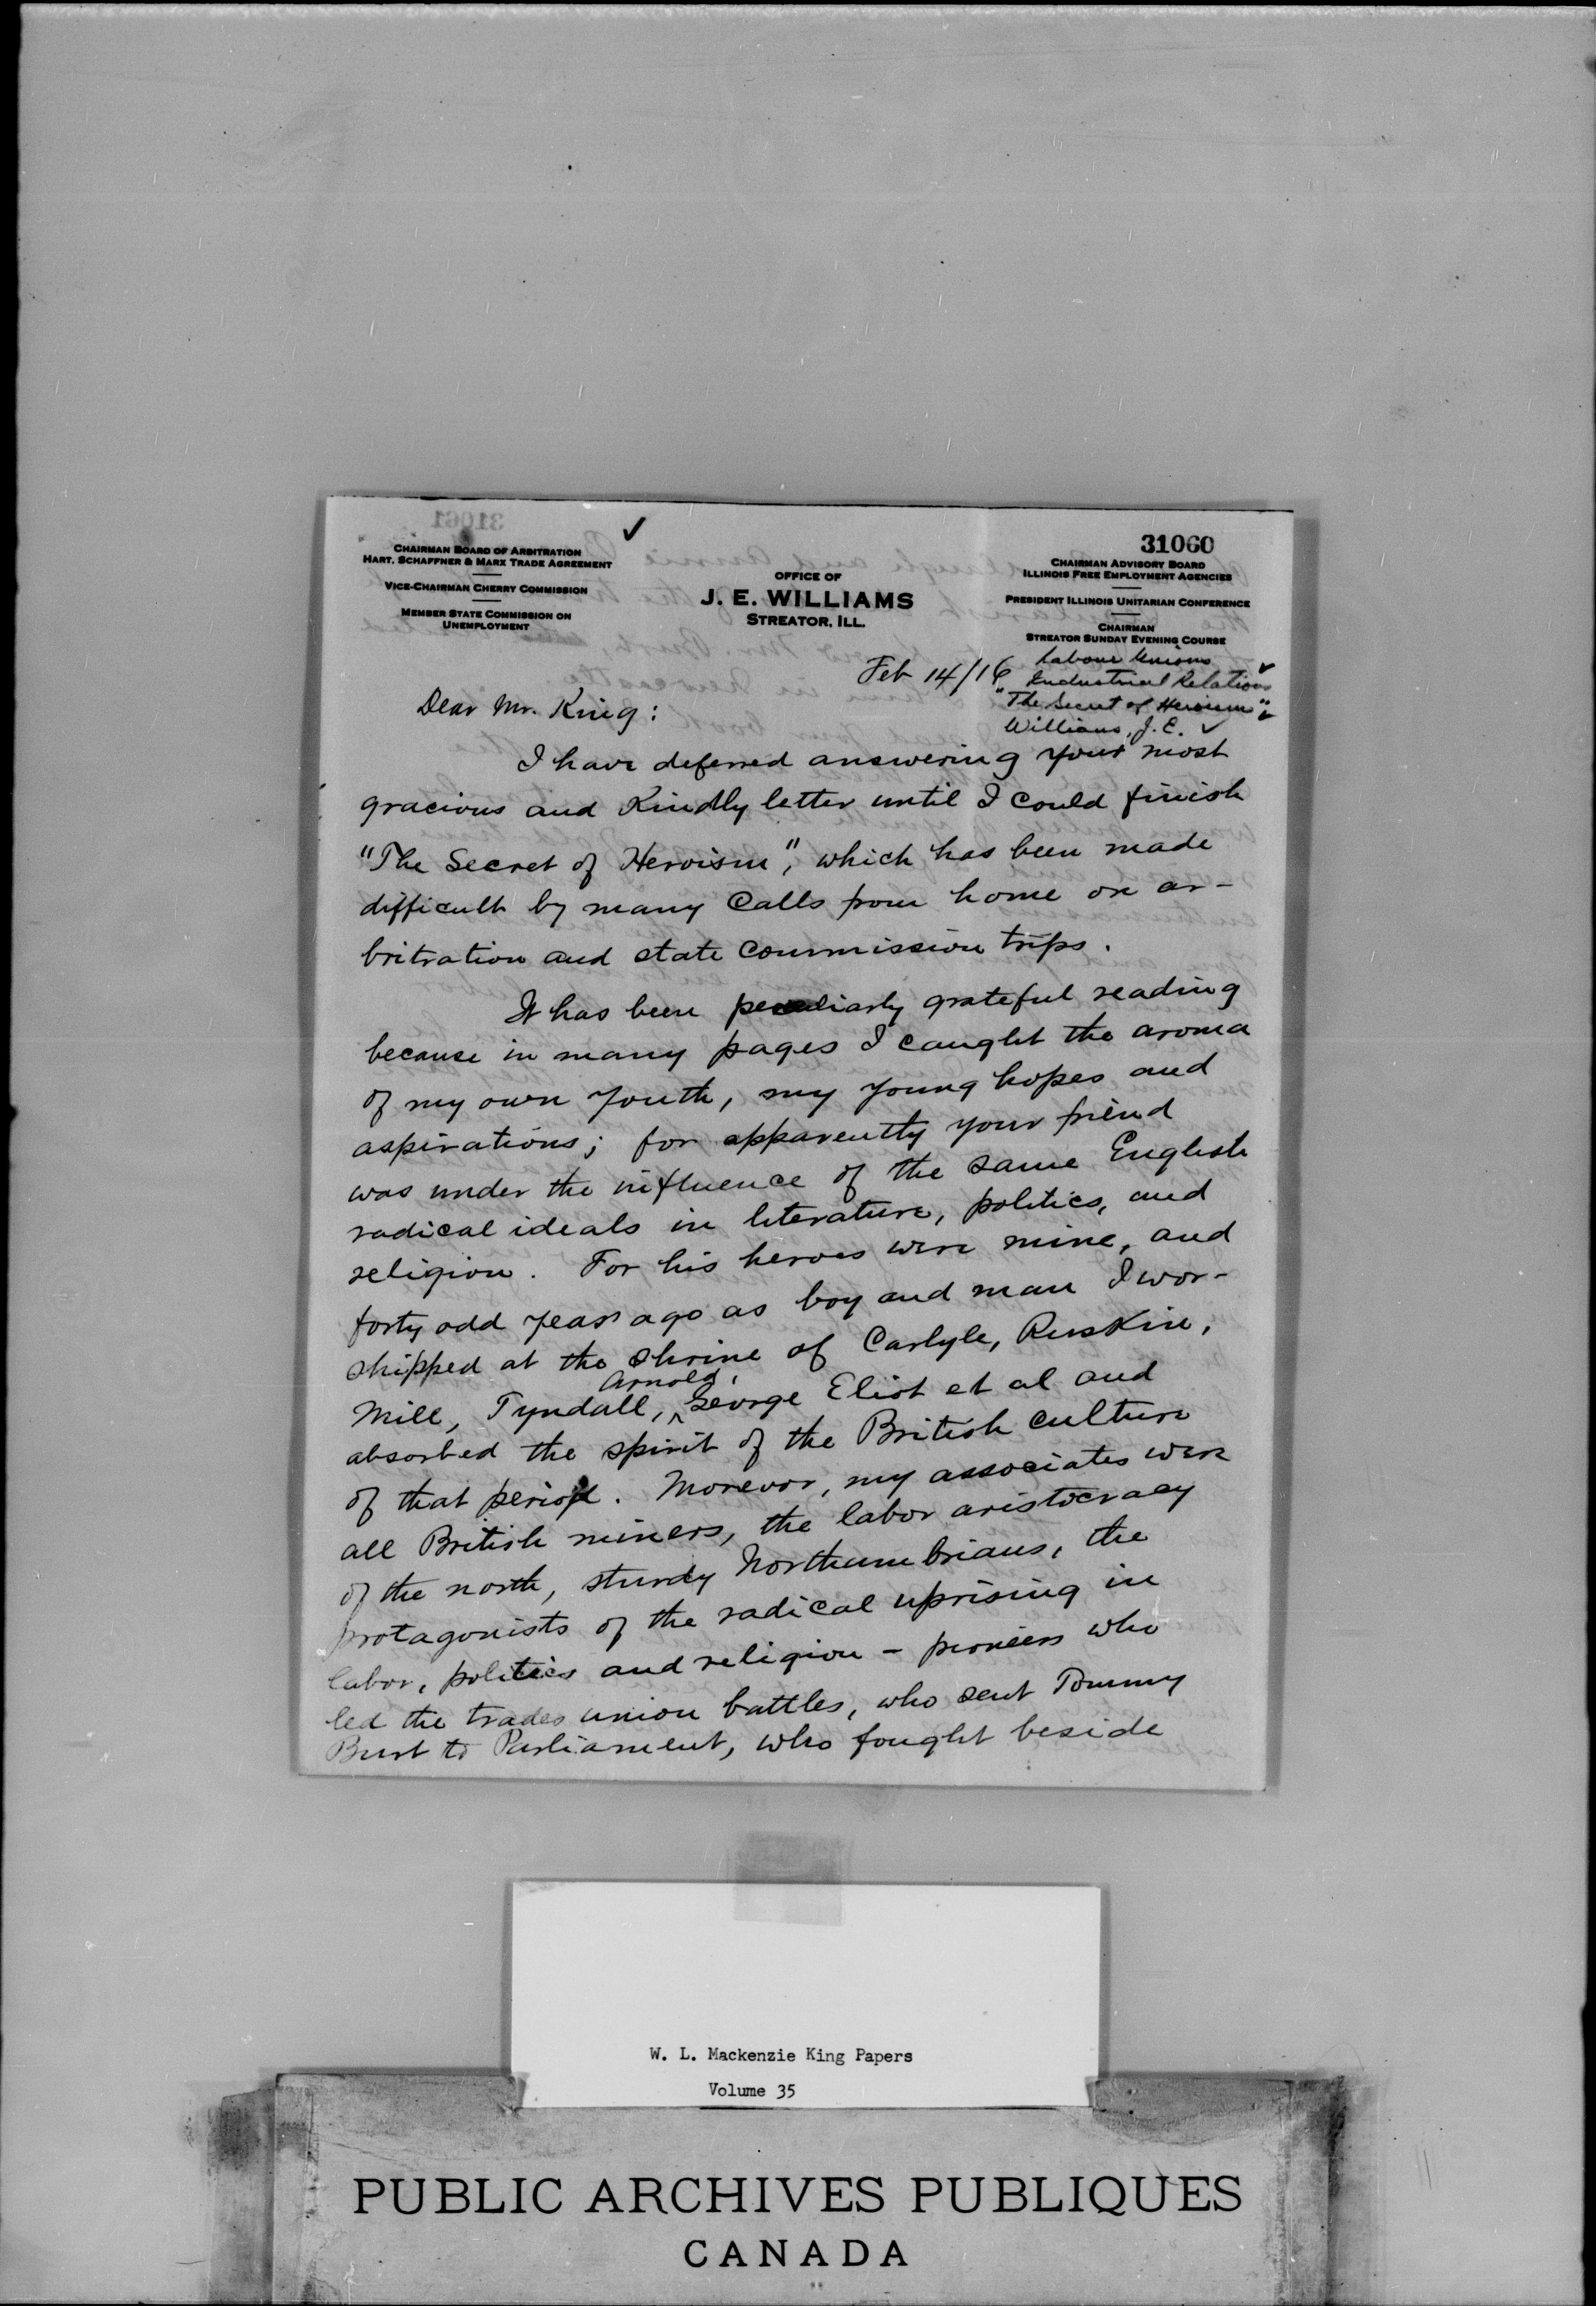 31060
CHAIRMAN BOARD OF ARBITRATION
HART, SCHAFFNER & MARX TRADE AGREEMENT
VICE-CHAIRMAN CHERRY COMMISSION
MEMBER STATE COMMISSION ON
UNEMPLOYMENT
OFFICE OF
J. E. WILLIAMS
STREATOR, ILL.
CHAIRMAN ADVISORY BOARD
ILLINOIS FREE EMPLOYMENT AGENCIES
PRESIDENT ILLINOIS UNITARIAN CONFERENCE
CHAIRMAN
STREATOR SUNDAY EVENING COURSE
Labour Unions
Industrial Relations
"The Secret of Heroism"
Williams, J. E.
Feb 14/16
Dear Mr. King:
I have deferred answering your most
gracious and kindly letter until I could finish
"The Secret of Heroism", which has been made
difficult by many calls from home on ar-
bitration and state commission trips.
It has been peculiarly grateful reading
because in many pages I caught the aroma
of my own youth, my young hopes and
aspirations; for apparently your friend
was under the influence of the same English
radical ideals in literature, politics, and
religion. For his heroes were mine, and
forty odd years ago as boy and man I wor-
shipped at the shrine of Carlyle, Ruskin,
Mill, Tyndall, Arnold, George Eliot et al and
absorbed the spirit of the British culture
of that period. Morevor, my associates were
all British miners, the labor aristocracy
of the north, sturdy Northumbrians, the
protagonists of the radical uprising in
labor, politics and religion - pioneers who
led the trades union battles, who sent Tommy
Burt to Parliament, who fought beside
W. L. Mackenzie King Papers
Volume 35
PUBLIC ARCHIVES PUBLIQUES
CANADA